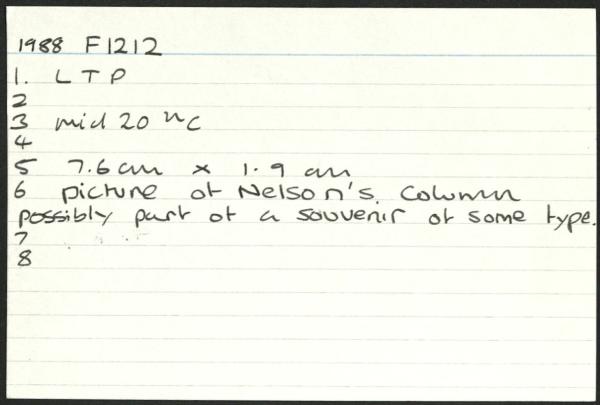 1988 F1212
1. LTP
2
3 mid 20th C
4
5 7.6cm x 1.9 cm
6 picture of Nelson's. Column
possibly part of a souvenir of some type.
7
8